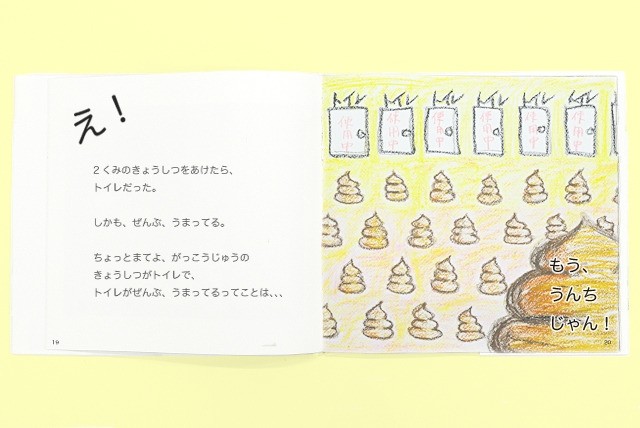 え！
２くみのきょうしつをあけたら、
トイレだった。
しかも、ぜんぶ、うまってる。
ちょっとまてよ、がっこうじゅうの
きょうしつがトイレで、
トイレがぜんぶ、うまってるってことは、、、
19
トイレ トイレ トイレ トイレ トイレ トイレ ト
使用中 使用中 使用中 使用中 使用中 使用中
もう、
うんち
じゃん！
20